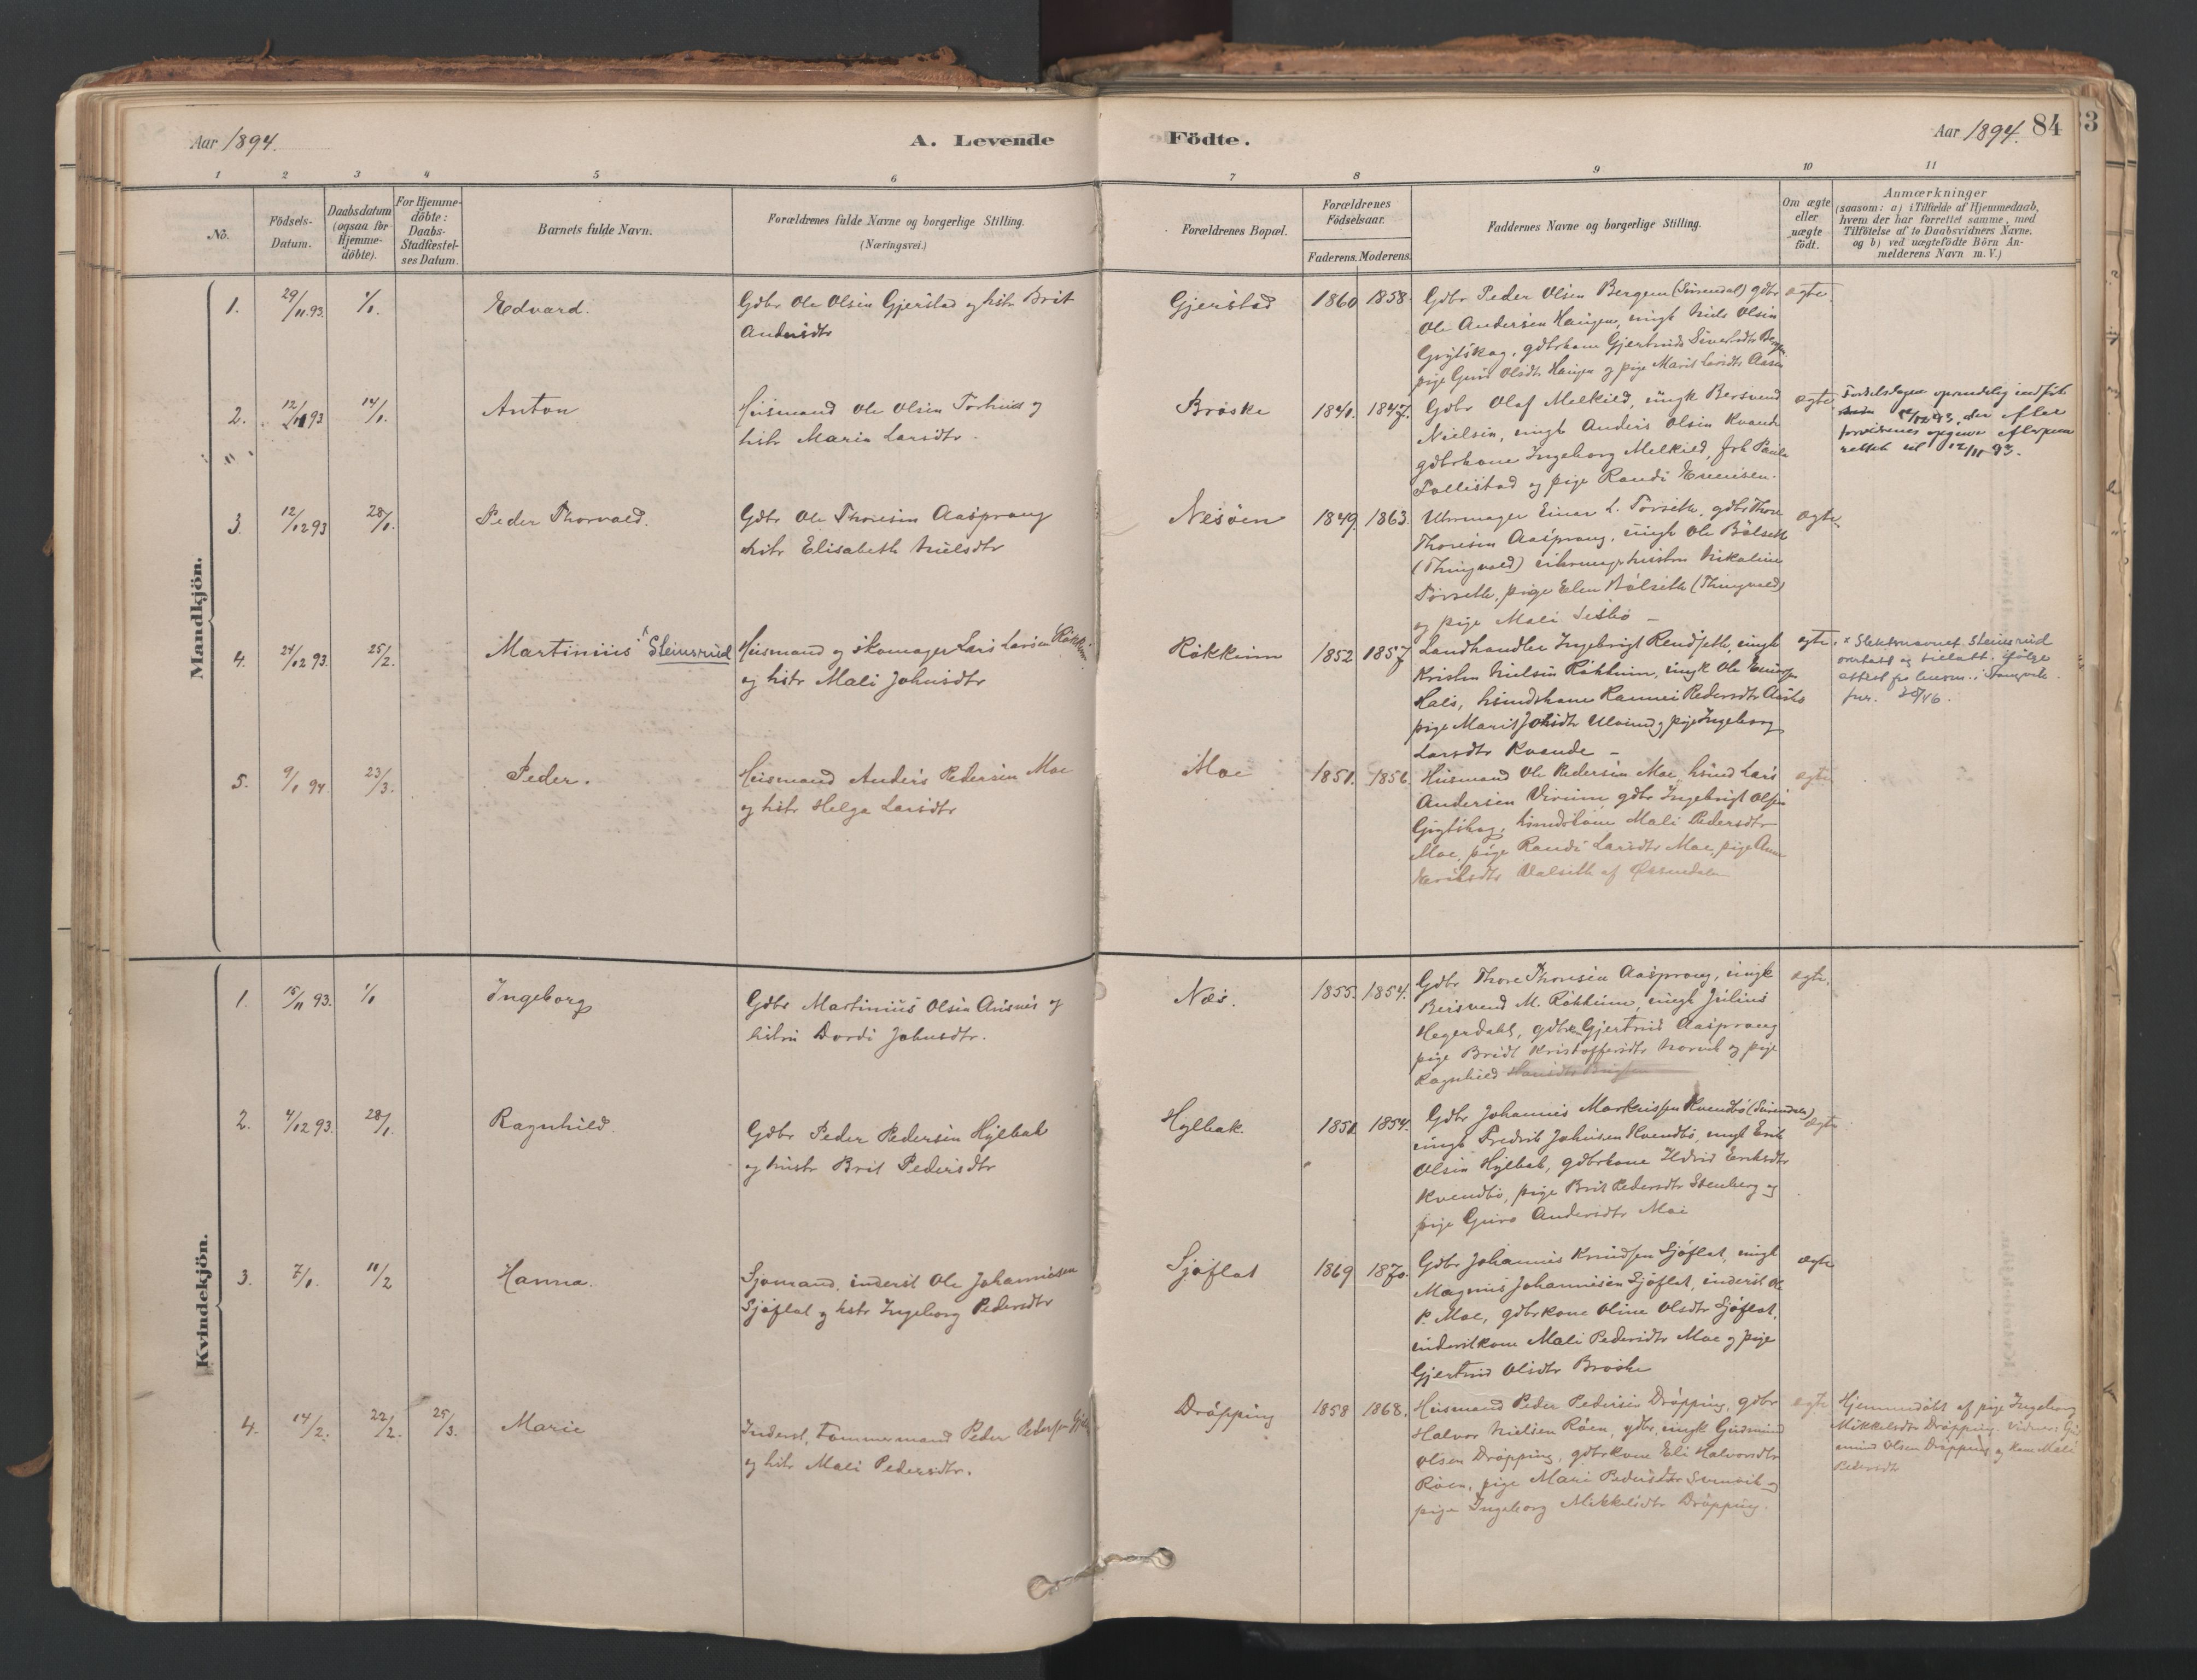 Aar 1894.
A. Levende Födte.
Aar 1894. 84
1 2 3 4 5 6 7 8 9 10 11
No.
Födsels-
Datum.
Daabsdatum
(ogsaa for
Hjemme-
döbte).
For Hjemme-
döbte:
Daabs-
Stadfæstel-
ses Datum.
Barnets fulde Navn.
Forældrenes fulde Navne og borgerlige Stilling.
(Næringsvei.)
Forældrenes Bopæl.
Forældrenes
Födselsaar.
Faderens. Moderens.
Faddernes Navne og borgerlige Stilling.
Om ægte
eller
uægte
födt.
Anmærkninger
(saasom: a) i Tilfælde af Hjemmedaab,
hvem der har forrettet samme, med
Tilföielse af to Daabsvidners Navne.
og b) ved uægtefödte Börn An-
melderens Navn m.V.)
Mandkjön.
1. 29/11.93. 1/1. Edvard.
Gdbr Ole Olsen Gjerstad og hstr Brit
Andersdtr
Gjerstad 1860 1858.
Gdbr Peder Olsen Bergem (Surendal) gdbr
Ole Andersen Haugen, ungk Nils Olsen
Grytskog, gdbrkone Gjertrud Sivertsdtr
pige Guri Olsdtr Haugen og pige Marit Larsdtr Aasen
ægte.
2. 12/11 93 14/1. Anton
Husmand Ole Olsen
hstr Marie Larsdtr.
Bröske 1841. 1847.
Gdbr Olaf Melkild, ungk Bersvend
Nielsen, ungk Anders Olsen Kvande
gdbrkone Ingeborg Melkild, frk Paula
Tallistad og pige Randi Ewensen.
ægte
Födselsdagen oprindelig indfört
12/12 93, der efter
forældrenes opgave
rettet til 12/11 93.
3. 12/12 93 28/1. Peder Thorvald.
Gdbr Ole Thoresen Aasprang
hstr Elisabeth Nielsdtr
Nesöen 1849. 1863.
Uhrmager Einar L. Torseth, gdbr Thore
Thoresen Aasprang, ungk Ole Bölseth
(Thingvold) uhrmagerhustru Nikoline
Torseth, pige Elen Bölseth (Thingvold)
og pige Mali
ægte
4. 24/12 93. 25/2. Martinius x Steinsrud
Husmand og skomager Lars Larsen Rökkum
og hstr Mali Johnsdtr
Rökkum 1852 1857
Landhandler Ingebrigt Rendseth, ungk
Kristen Nielsen Rökkum, ungk Ole
Hals, husmdskone Rannei Pedersdtr
pige Marit Johsdtr Ulvund og pige Ingeborg
Larsdtr Kvande
ægte.
x Slektsnavnet Steinsrud
overtatt og tillatt ifölge
attest fra lensm. i Stangvik
5. 9/1 94 23/3. Peder.
Husmand Anders Pedersen Moe
og hstr Helga Larsdtr
Moe 1851. 1856.
Husmand Ole Pedersen Moe, husmd Lars
Andersen Virum, gdbr Ingebrigt Olsen
Grytskog, husmdskone Mali Pedersdtr
Moe, pige Randi Larsdtr Moe, pige Anne
Eriksdtr Valseth af Öxendalen
ægte
Kvindekjön.
1. 15/11 93. 1/1 Ingeborg
Gdbr Martinius Olsen Aasnes og
hstru Dordi Johnsdtr.
Næs. 1855. 1854.
Gdbr Thore Thoresen Aasprang, ungk
Bersvend M. Rökkum, ungk Julius
Hegerdahl, gdbrk Gjertrud Aasprang
pige Bridt Kristoffersdtr Norvik og pige
Ragnhild
ægte.
2. 4/12 93. 28/1. Ragnhild.
Gdbr Peder Pedersen Hylbak
og hustr Brit Pedersdtr
Hylbak. 1851 1854.
Gdbr Johannes Markussen Kvendbö (Surendalen)
ungk Fredrik Johnsen Kvendbö, ungk Erik
Olsen Hylbak, gdbrkone Eldrid Eriksdtr
Kvendbö, pige Brit Pedersdtr Stenberg og
pige Guro Andersdtr Moe
ægte
3. 7/1. 11/2 Hanna.
Sjömand, inderst Ole Johannesen
Sjöflot og hstr Ingeborg Pedersdtr
Sjöflot 1869 1870.
Gdbr Johannes Knudsen Sjöflot, ungk
Magnus Johannesen Sjöflot, inderst Ole
P. Moe, gdbrkone Oline Olsdtr Sjöflot,
inderstkone Mali Pedersdtr Moe og pige
Gjertrud Olsdtr Bröske
ægte
4. 14/2. 22/2. 25/3. Marie
Inderst, Tömmermand Peder Peders.
og hstr Mali Pedersdtr.
Dröpping 1858 1868.
Husmand Peder Pedersen Dröpping, gdbr
Halvor Nielsen Röen, gdbr, ungk Gudmund
Olsen Dröpping, gdbrkone Eli Halvorsdtr
Röen, pige Mari Pedersdtr Svinvik og
pige Ingeborg Mikkelsdtr Dröpping.
ægte
Hjemmedöbt af pige Ingeborg
Mikkelsdtr Dröpping. Vidner: Gud-
mund Olsen Dröpping og kone Mali
Pedersdtr